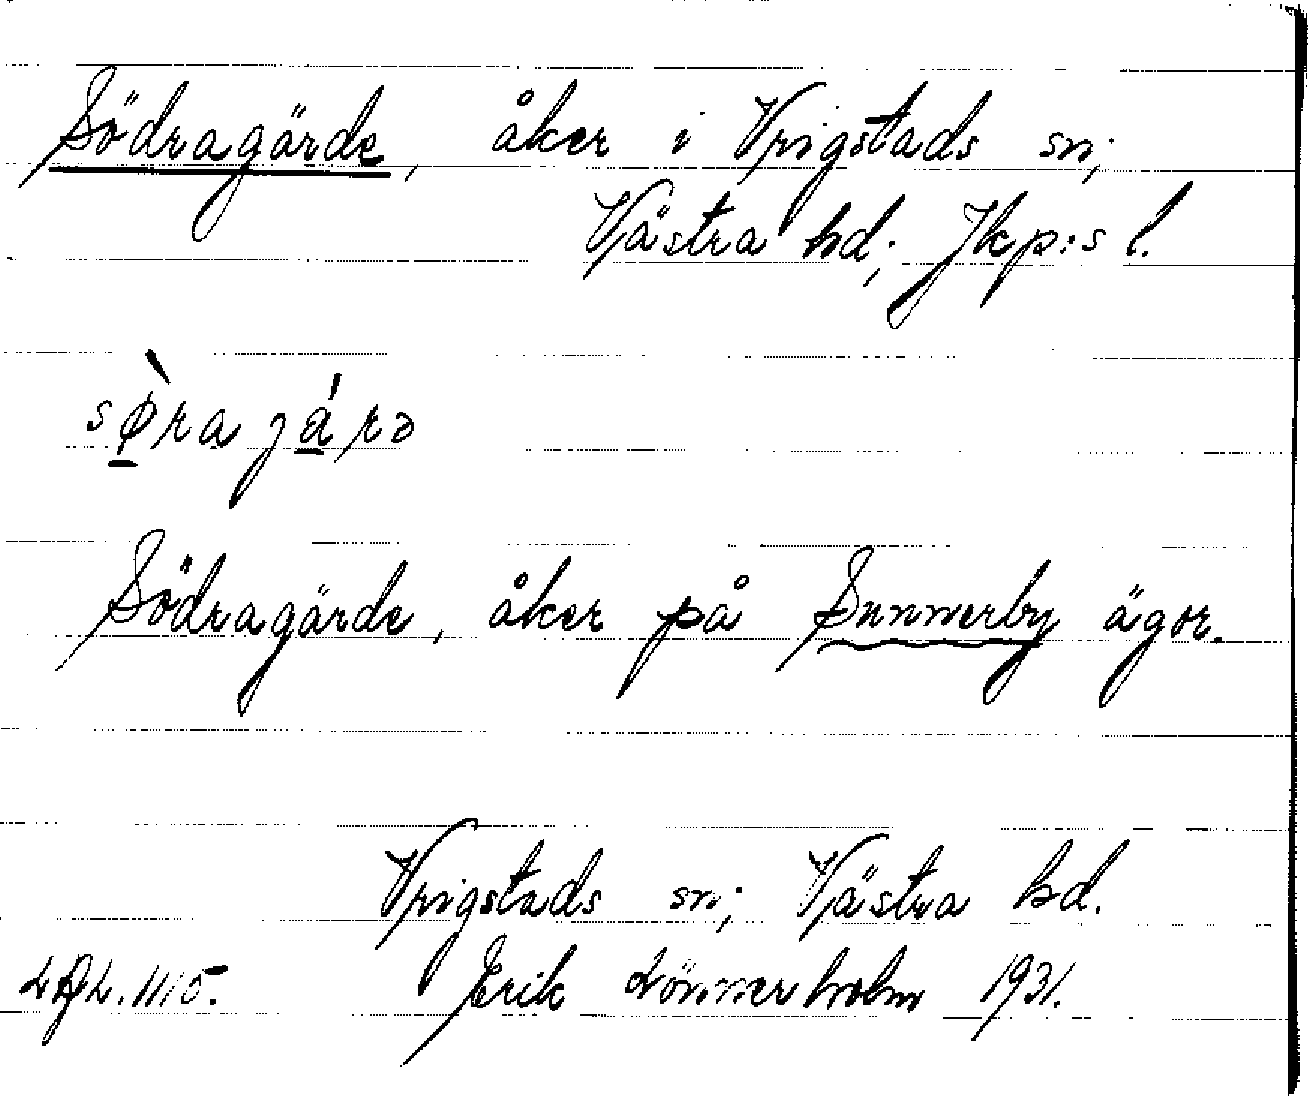 Södragärde, åker i Vrigstads sn;
Västra hd; Jkp:s l.
sø̀ra járə
Södragärde, åker på Sunnerby ägor.
Vrigstads sn; Västra hd.
1115. Erik Lönnerholm 1931.